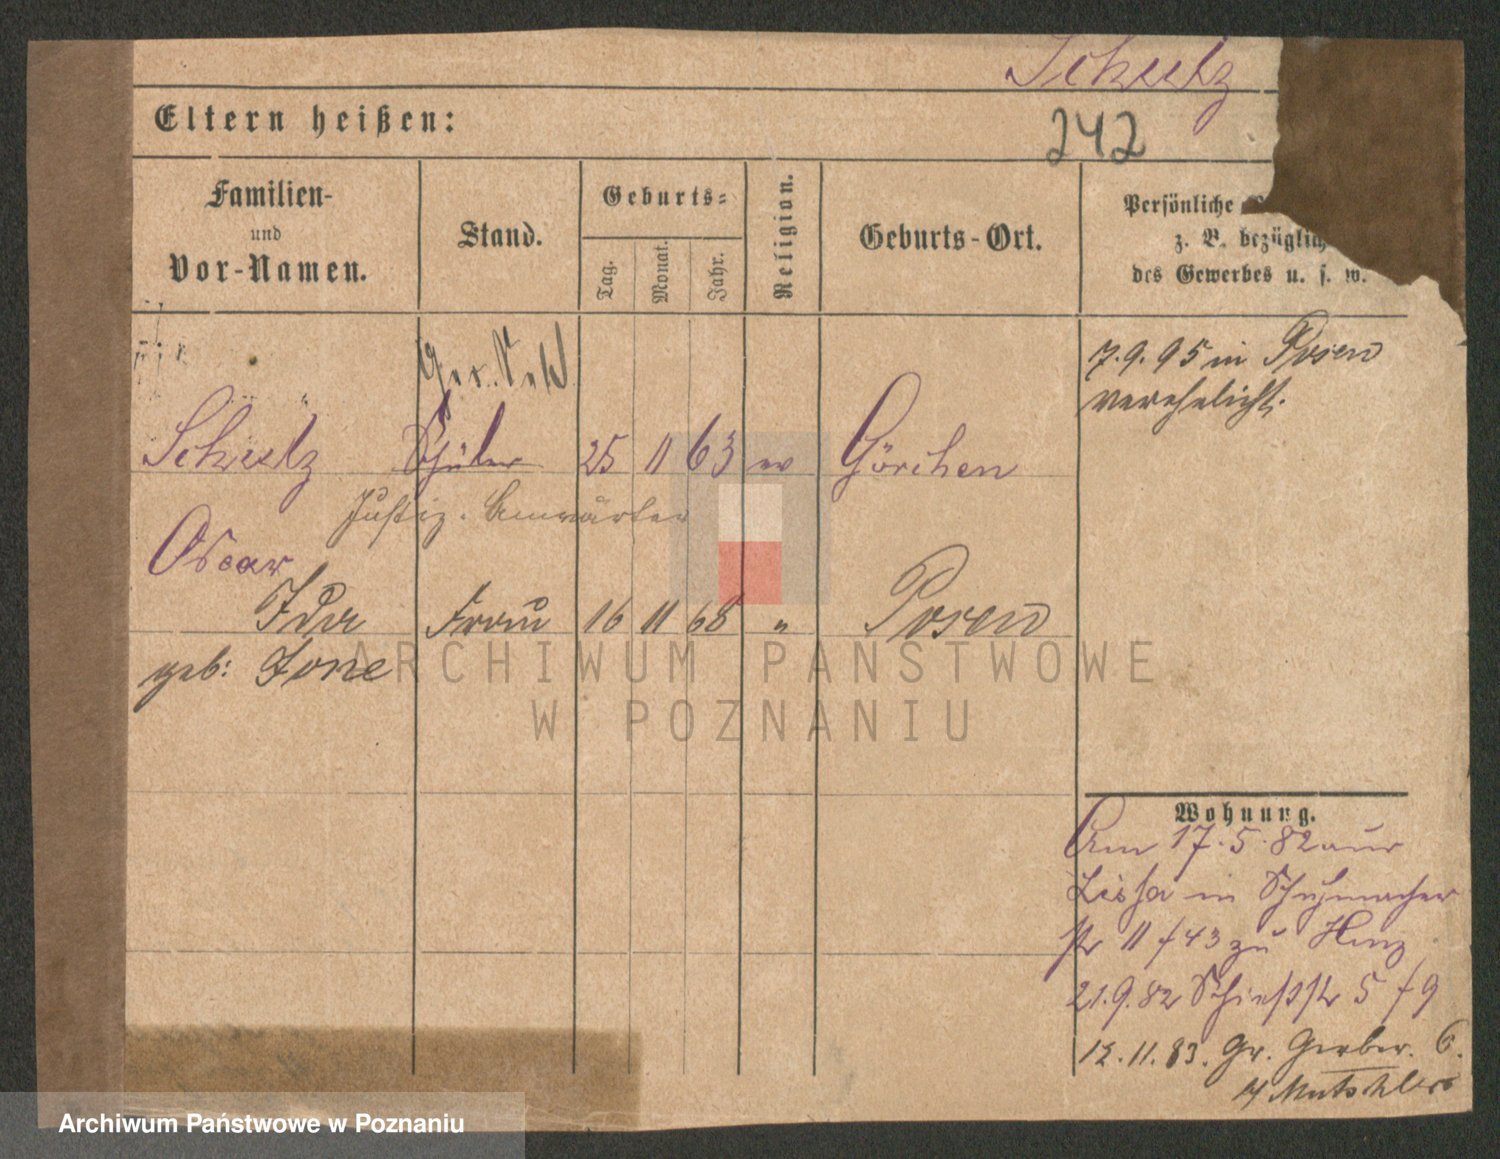 Schulz
Eltern heißen:
242
Familien-
und
Vor-Namen.
Stand.
Geburts-
Tag.
Monat.
Jahr.
Religion.
Geburts-Ort.
Persönliche
z. B. bezüglich
des Gewerbes u. s. w.
7.9.95 in Posen
verehelicht.
Schulz Schüler 25 11 63 ev Görchen
Justiz-Anwärter
Oscar
Ida Frau 16 11 68 " Posen
geb: Jone
Wohnung.
Am 17.5.82 aus
Lissa in Schuhmacher
str 11 f 43 zu Hinz
21.9.82 Schießstr 5 f 9
12.11.83. Gr. Gerber. 6.
ARCHIWUM PAŃSTWOWE
W POZNANIU
Archiwum Państwowe w Poznaniu